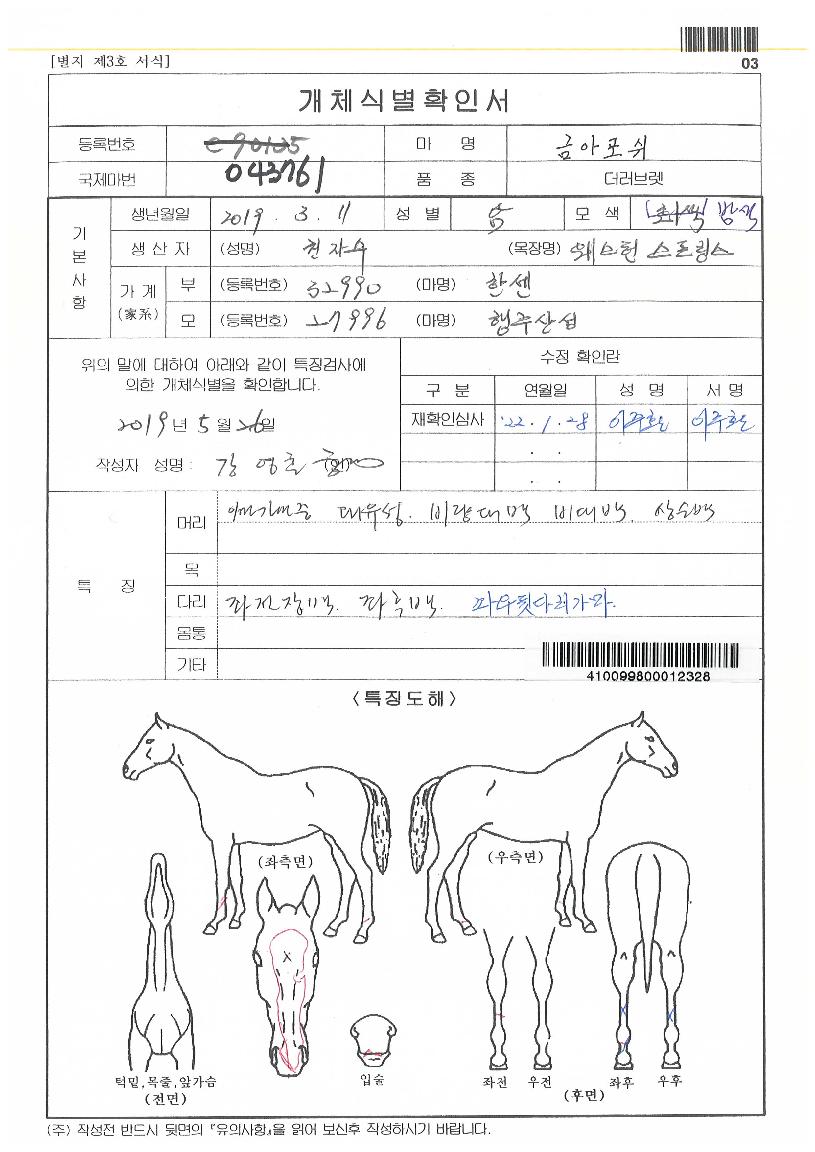 [별지 제3호 서식]
03
개체식별확인서
등록번호 마 명 금아포쉬
국제마번 043761 품 종 더러브렛
기본사항
생년월일 2019 . 3 . 11 성 별 암 모 색 밤색
생 산 자 (성명) (목장명) 웨스턴 스프링스
가 계 (家系)
부 (등록번호) 32990 (마명) 한센
모 (등록번호) 27996 (마명) 행주산섭
위의 말에 대하여 아래와 같이 특징검사에
의한 개체식별을 확인합니다.
2019년 5월 26일
작성자 성명 : 강영호
수정 확인란
구 분 연월일 성 명 서 명
재확인심사 '22. 1. 28 이주호 이주호
. .
. .
특 징
머리 대유성. 비량대백 비대백. 상순백
목
다리 좌전장백. 좌후백. 좌우뒷다리가마.
몸통
기타
410099800012328
<특징도해>
(좌측면) (우측면)
턱밑,목줄,앞가슴
(전면)
입술
좌전 우전 좌후 우후
(후면)
(주) 작성전 반드시 뒷면의 『유의사항』을 읽어 보신후 작성하시기 바랍니다.